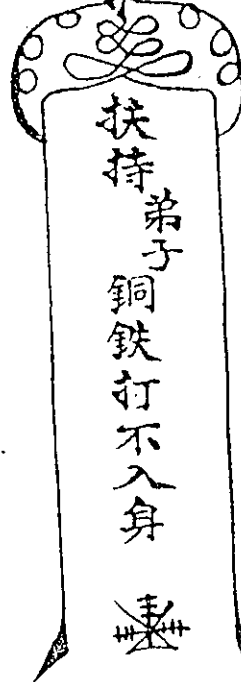 扶持
弟子
銅鉄打不入身